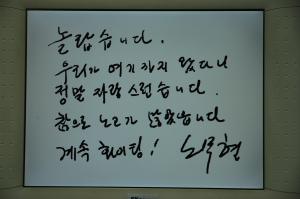 놀랍습니다.
우리가 여기까지 왔다니
정말 자랑스럽습니다.
참으로 노고가 많았습니다
계속 화이팅! 노무현